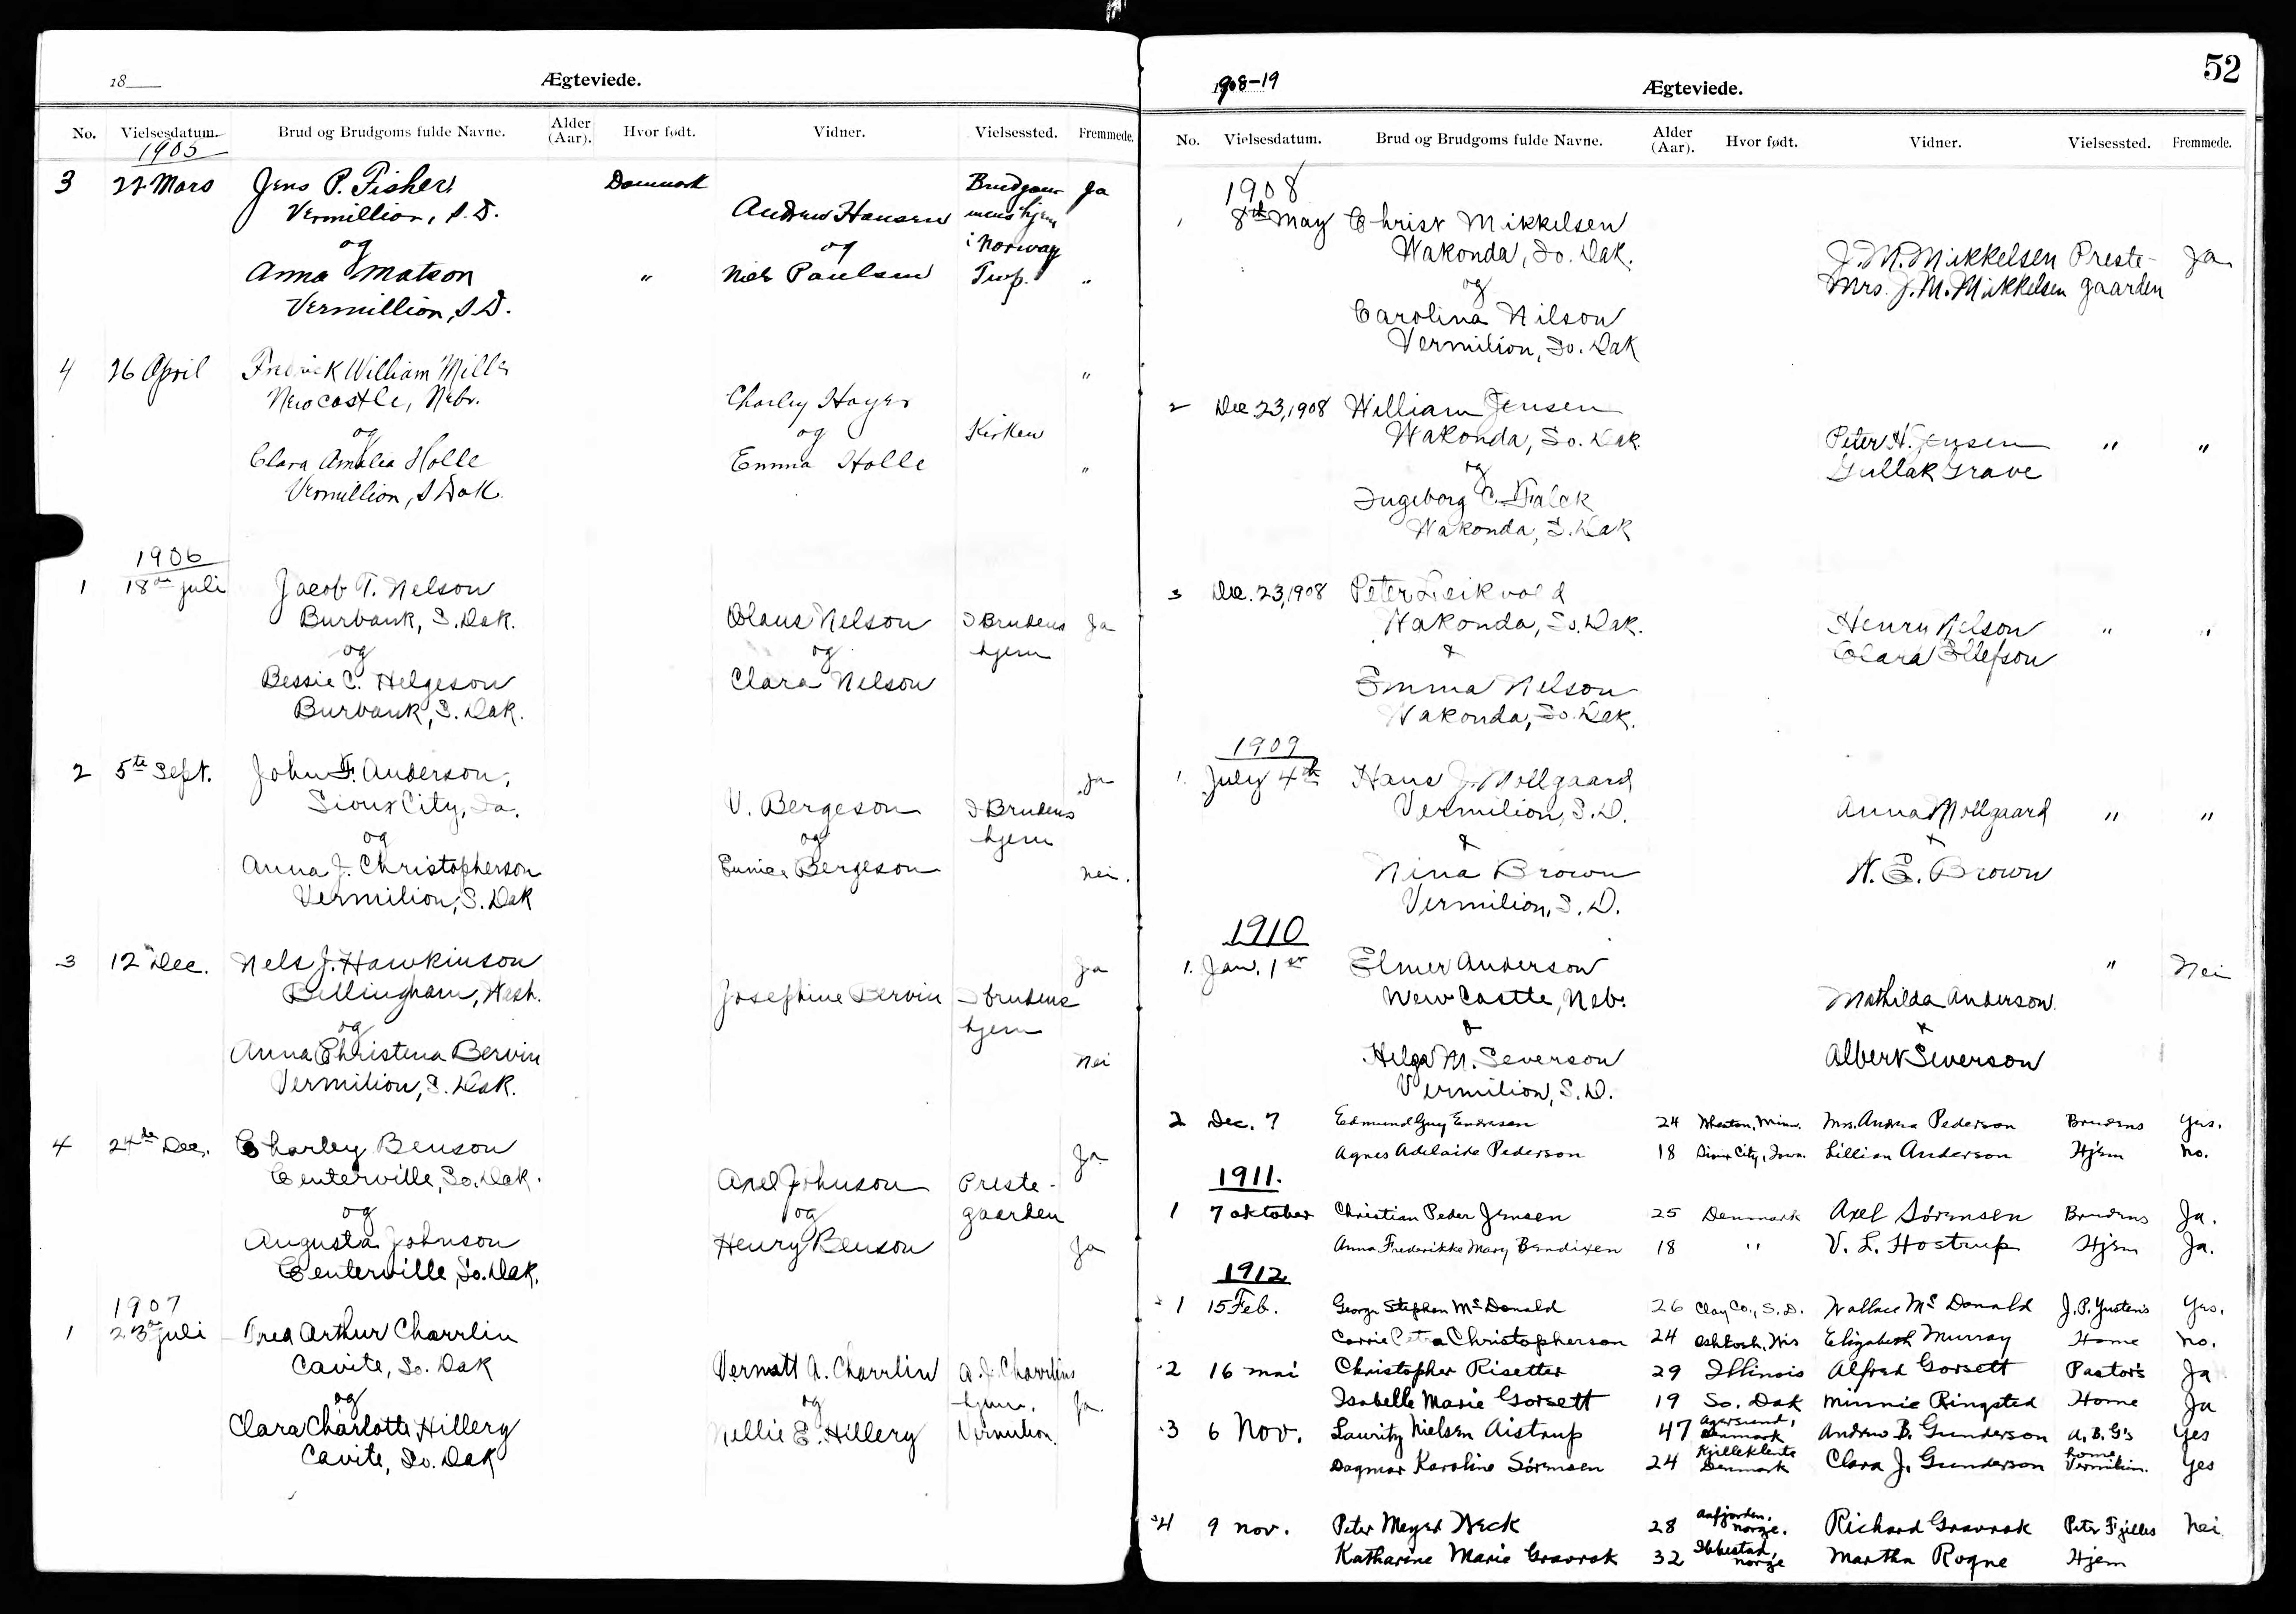 18
Ægteviede.
No. Vielsesdatum. Brud og Brudgoms fulde Navne. Alder (Aar). Hvor født. Vidner. Vielsessted. Fremmede.
1905
3 22 Mars Jens P. Fisher Danmark Brudgom- Ja
Vermillion, S.D. Andrew Hansen mens hjem
og og i Norway
Anna Matson " Niels Paulsen Twp. "
Vermillion, S.D.
4 26 April Fredrick William Mills "
Newcastle, Nebr. Charley Hayes
og og Kirken
Clara Amalia Holle Emma Holle "
Vermillion, S Dak.
1906
1 18de juli Jacob T. Nelson
Burbank, S. Dak. Olaus Nelson I Brudens Ja
og og hjem
Bessie C. Helgeson Clara Nelson
Burbank, S. Dak.
2 5te Sept. John F. Anderson, Ja
Sioux City, Ia. V. Bergeson I Brudens
og og hjem
Anna J. Christopherson Eunice Bergeson Nei.
Vermilion, S. Dak
3 12 Dec. Nels J. Hawkinson Ja
Bellingham, Wash. Josephine Bervin I brudens
og hjem
Anna Christena Bervin Nei
Vermilion, S. Dak.
4 24de Dec. Charley Benson Ja
Centerville, So. Dak. Axel Johnson Preste-
og og gaarden
Augusta Johnson Henry Benson Ja
Centerville, So. Dak.
1907
1 23de juli Fred Arthur Charrlin
Cavite, So. Dak Vernatt A. Charrlin A. J. Charrlins
og og hjem. Ja.
Clara Charlotte Hillery Nellie E. Hillery Vermilion.
Cavite, So. Dak
52
1908-19
Ægteviede.
No. Vielsesdatum. Brud og Brudgoms fulde Navne. Alder (Aar). Hvor født. Vidner. Vielsessted. Fremmede.
1908
1 8th May Christ Mikkelsen
Wakonda, So. Dak. J. M. Mikkelsen Preste- Ja
og Mrs. J. M. Mikkelsen gaarden
Carolina Nilson
Vermilion, So. Dak
2 Dec 23, 1908 William Jensen
Wakonda, So. Dak. Peter H. Jensen " "
og Gullak Grave
Ingeborg C. Falck
Wakonda, S. Dak
3 Dec. 23, 1908 Peter Leikvold
Wakonda, So. Dak. Henry Nelson " "
& Clara Ellefson
Emma Nelson
Wakonda, So. Dak.
1909
1. July 4th Hans J. Mollgaard
Vermilion, S. D. Anna Mollgaard " "
& &
Nina Brown N. E. Brown
Vermilion, S. D.
1910
1. Jan. 1st Elmer Anderson " Nei
New Castle, Neb. Mathilda Anderson
& &
Helga M. Severson Albert Severson
Vermilion, S. D.
2 Dec. 7 Edmund Guy Endresen 24 Wheaton, Minn. Mrs. Andrea Pederson Brudens Yes.
Agnes Adelaide Pederson 18 Sioux City, Iowa. Lillian Anderson Hjem No.
1911.
1 7 oktober Christian Peder Jensen 25 Denmark Axel Sörensen Brudens Ja.
Anna Frederikke Mary Bendixen 18 " V. L. Hostrup Hjem Ja.
1912
1 15 Feb. George Stephen McDonald 26 Clay Co., S. D. Wallace McDonald J. P. Yusten's Yes.
Carrie Petra Christopherson 24 Oshkosh, Wis Elizabeth Murray Home No.
2 16 mai Christopher Risetter 29 Illinois Alfred Gorsett Pastor's Ja
Isabelle Marie Gorsett 19 So. Dak Minnie Ringsted Home Ja
3 6 Nov. Lauritz Nielsen Aistrup 47 Agersund, Denmark Andrew B. Gunderson A. B. G's Yes
Dagmar Karoline Sörensen 24 Kjelleklinte Denmark Clara J. Gunderson home Vermilion. Yes
4 9 nov. Peter Meyer Week 28 Aafjorden, Norge. Richard Gravrok Peter Fjelles Nei
Katharine Marie Gravrok 32 Ibbestad, Norge Martha Rogne Hjem